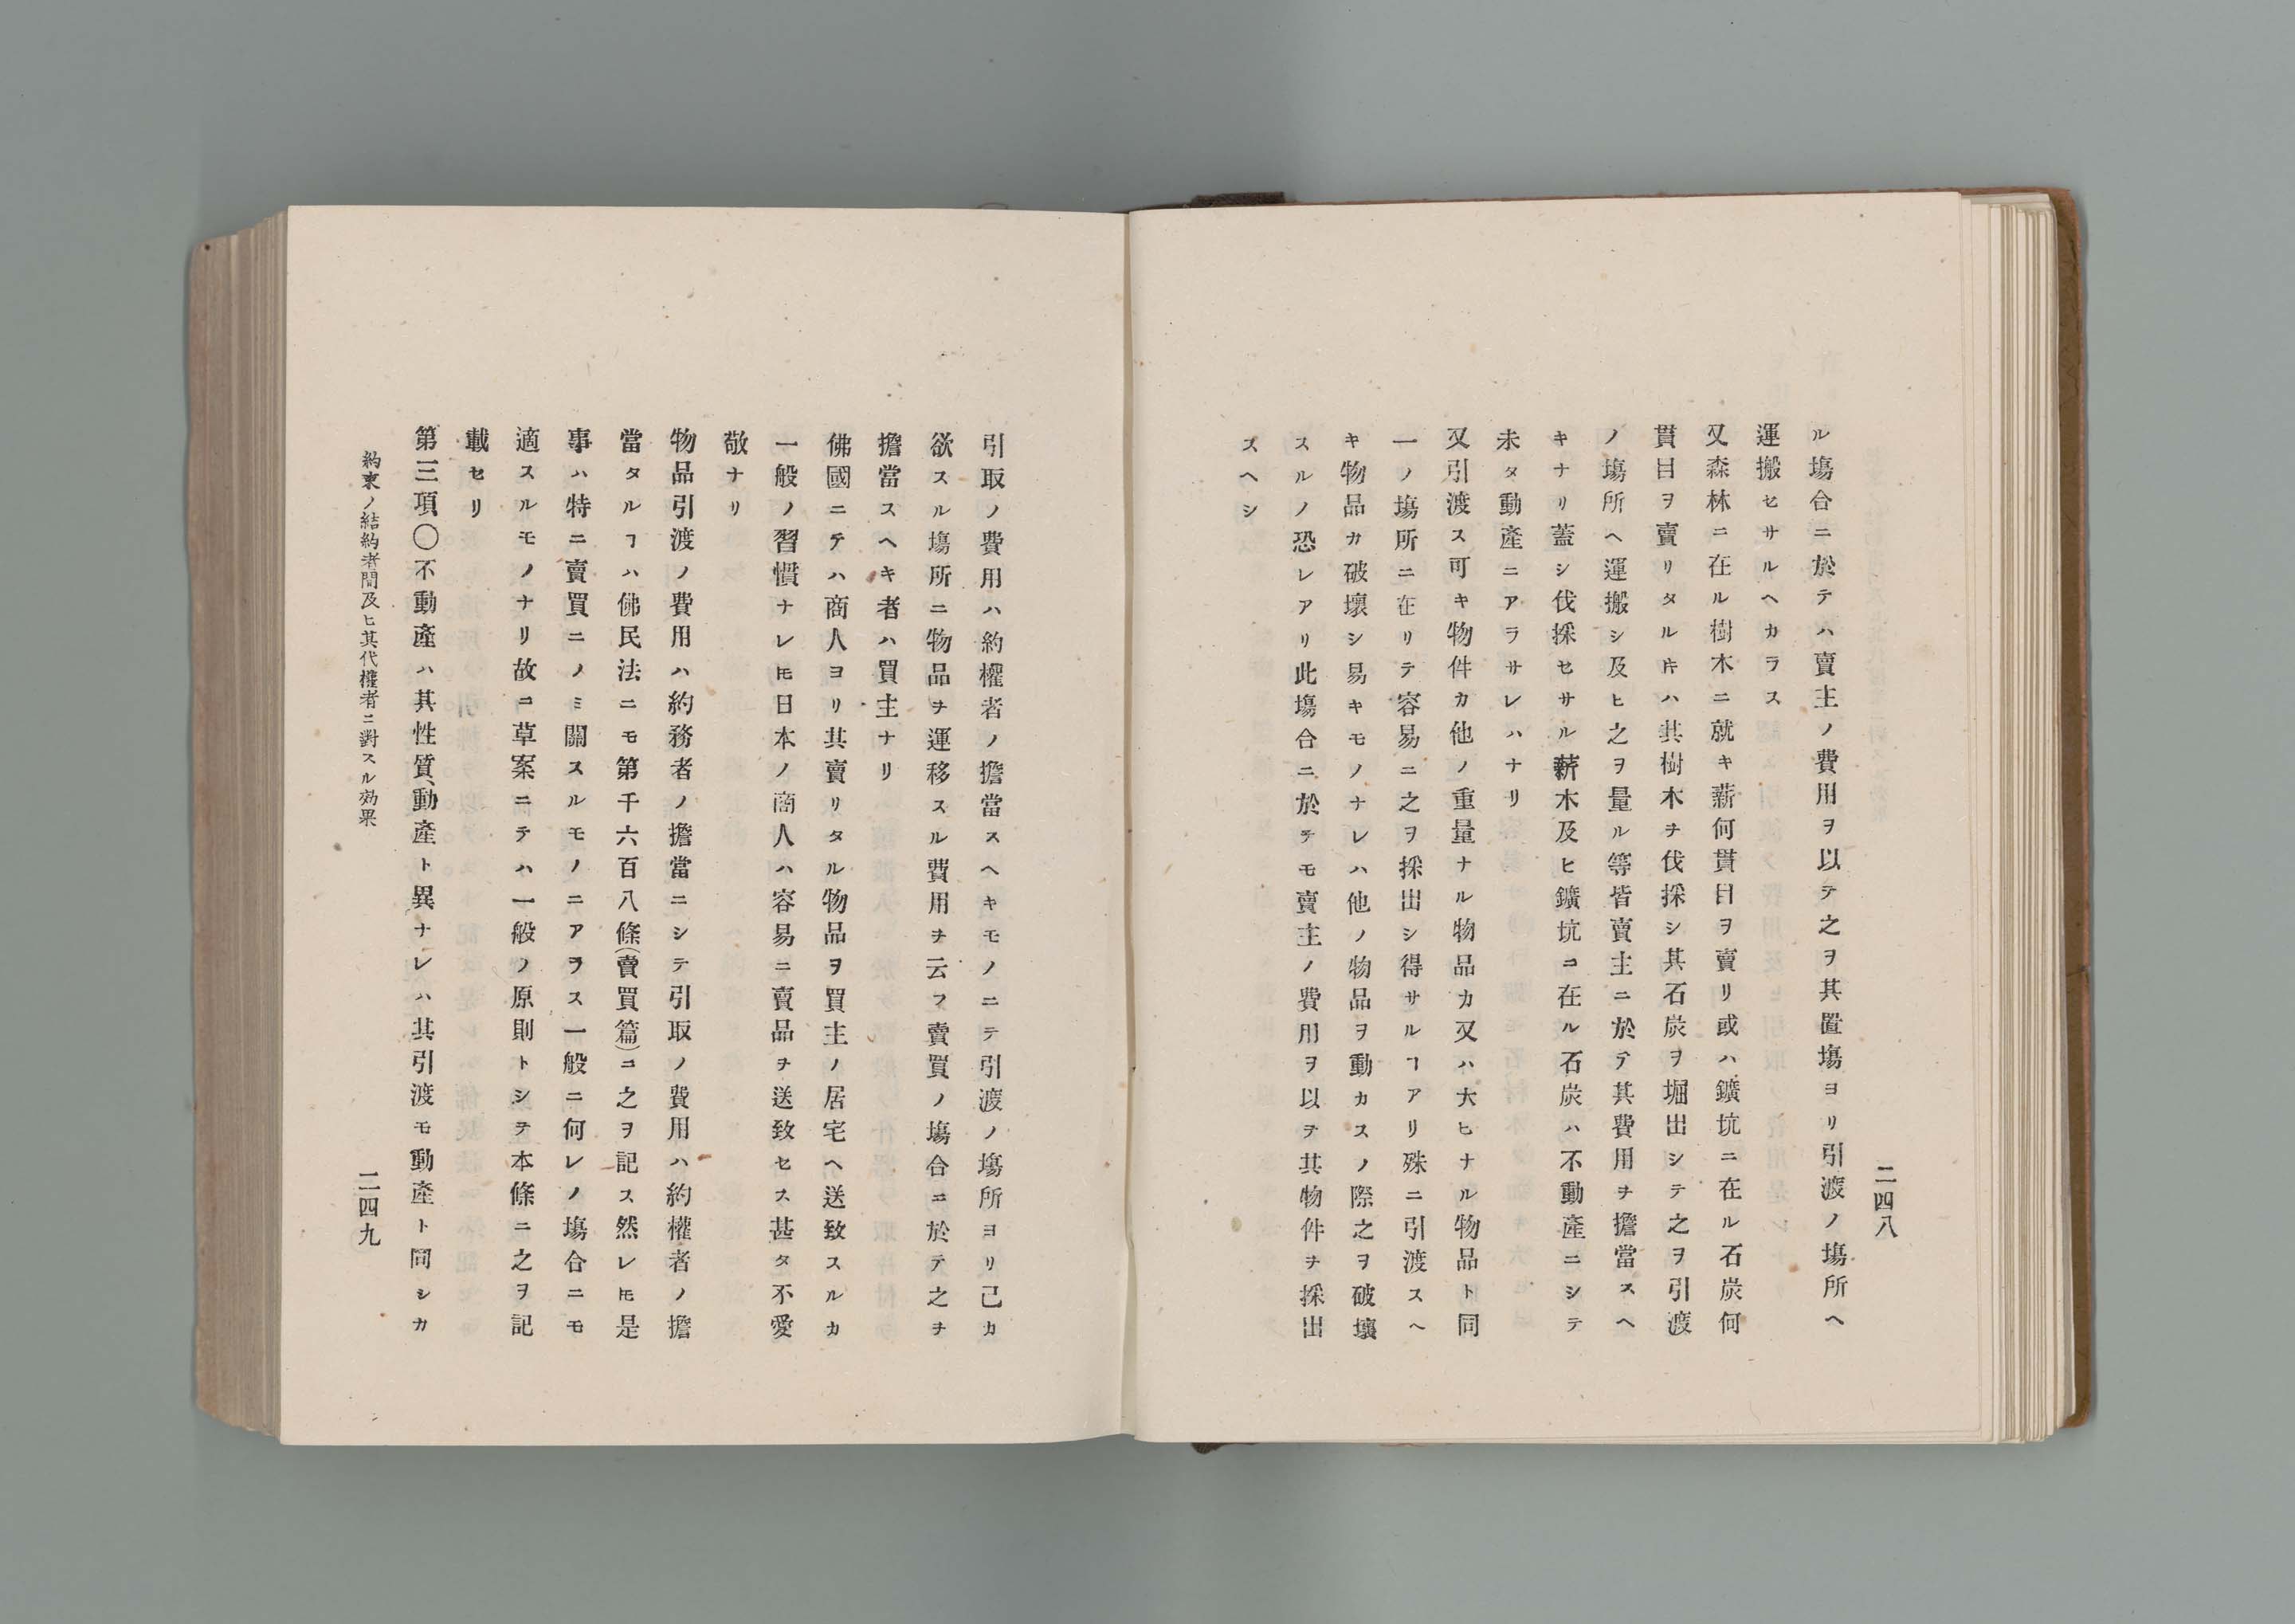 二四八
ル塲合ニ於テハ賣主ノ費用ヲ以テ之ヲ其置塲ヨリ引渡ノ塲所ヘ
運搬セサルヘカラス
又森林ニ在ル樹木ニ就キ薪何貫目ヲ賣リ或ハ鑛坑ニ在ル石炭何
貫目ヲ賣リタル片ハ其樹木チ伐採シ其石炭ヲ堀出シテ之ヲ引渡
ノ塲所ヘ運搬シ及ヒ之ヲ量ル等皆賣主ニ於テ其費用チ擔當スヘ
キナリ蓋シ伐採セサル薪木及ヒ鑛坑ニ在ル石炭ハ不動產ニシテ
未タ動產ニアラサレハナリ
又引渡ス可キ物件カ他ノ重量ナル物品カ又ハ大ヒナル物品ト同
一ノ塲所ニ在リテ容易ニ之ヲ採出シ得サルヿアリ殊ニ引渡スヘ
キ物品カ破壞シ易キモノナレハ他ノ物品ヲ動カスノ際之ヲ破壞
スルノ恐レアリ此塲合ニ於テモ賣主ノ費用ヲ以テ其物件チ採出
スヘシ
引取ノ費用ハ約權者ノ擔當スヘキモノニテ引渡ノ塲所ヨリ己カ
欲スル塲所ニ物品チ運移スル費用チ云フ賣買ノ塲合ニ於テ之チ
擔當スヘキ者ハ買主ナリ
佛國ニテハ商人ヨリ其賣リタル物品ヲ買主ノ居宅ヘ送致スルカ
一般ノ習慣ナレ𪜈日本ノ商人ハ容易ニ賣品チ送致セス甚タ不愛
敬ナリ
物品引渡ノ費用ハ約務者ノ擔當ニシテ引取ノ費用ハ約權者ノ擔
當タルヿハ佛民法ニモ第千六百八條(賣買篇)ニ之ヲ記ス然レ𪜈是
事ハ特ニ賣買ニノミ關スルモノニアラス一般ニ何レノ塲合ニモ
適スルモノナリ故ニ草案ニテハ一般ノ原則トシテ本條ニ之ヲ記
載セリ
第三項〇不動產ハ其性質、動產ト異ナレハ其引渡モ動產ト同シカ
約束ノ結約者間及ヒ其代權者ニ對スル効果
二四九